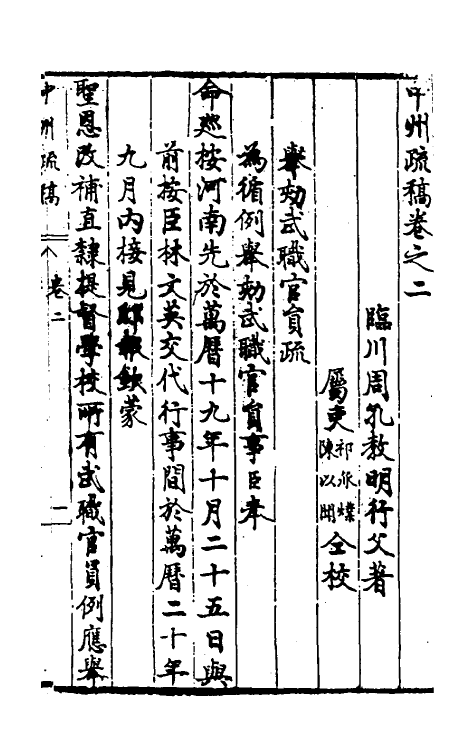 中州疏稿卷之二
臨川周孔教明行父著
屬吏祁承㸁陳以聞仝校
舉劾武職官員疏
為循例舉劾武職官員事臣奉
命廵按河南先於萬曆十九年十月二十五日與
前按臣林文英交代行事間於萬曆二十年
九月內接見邸報欽蒙
聖恩改補直隸提督學校所有武職官員例應舉
中州疏稿
卷二
一